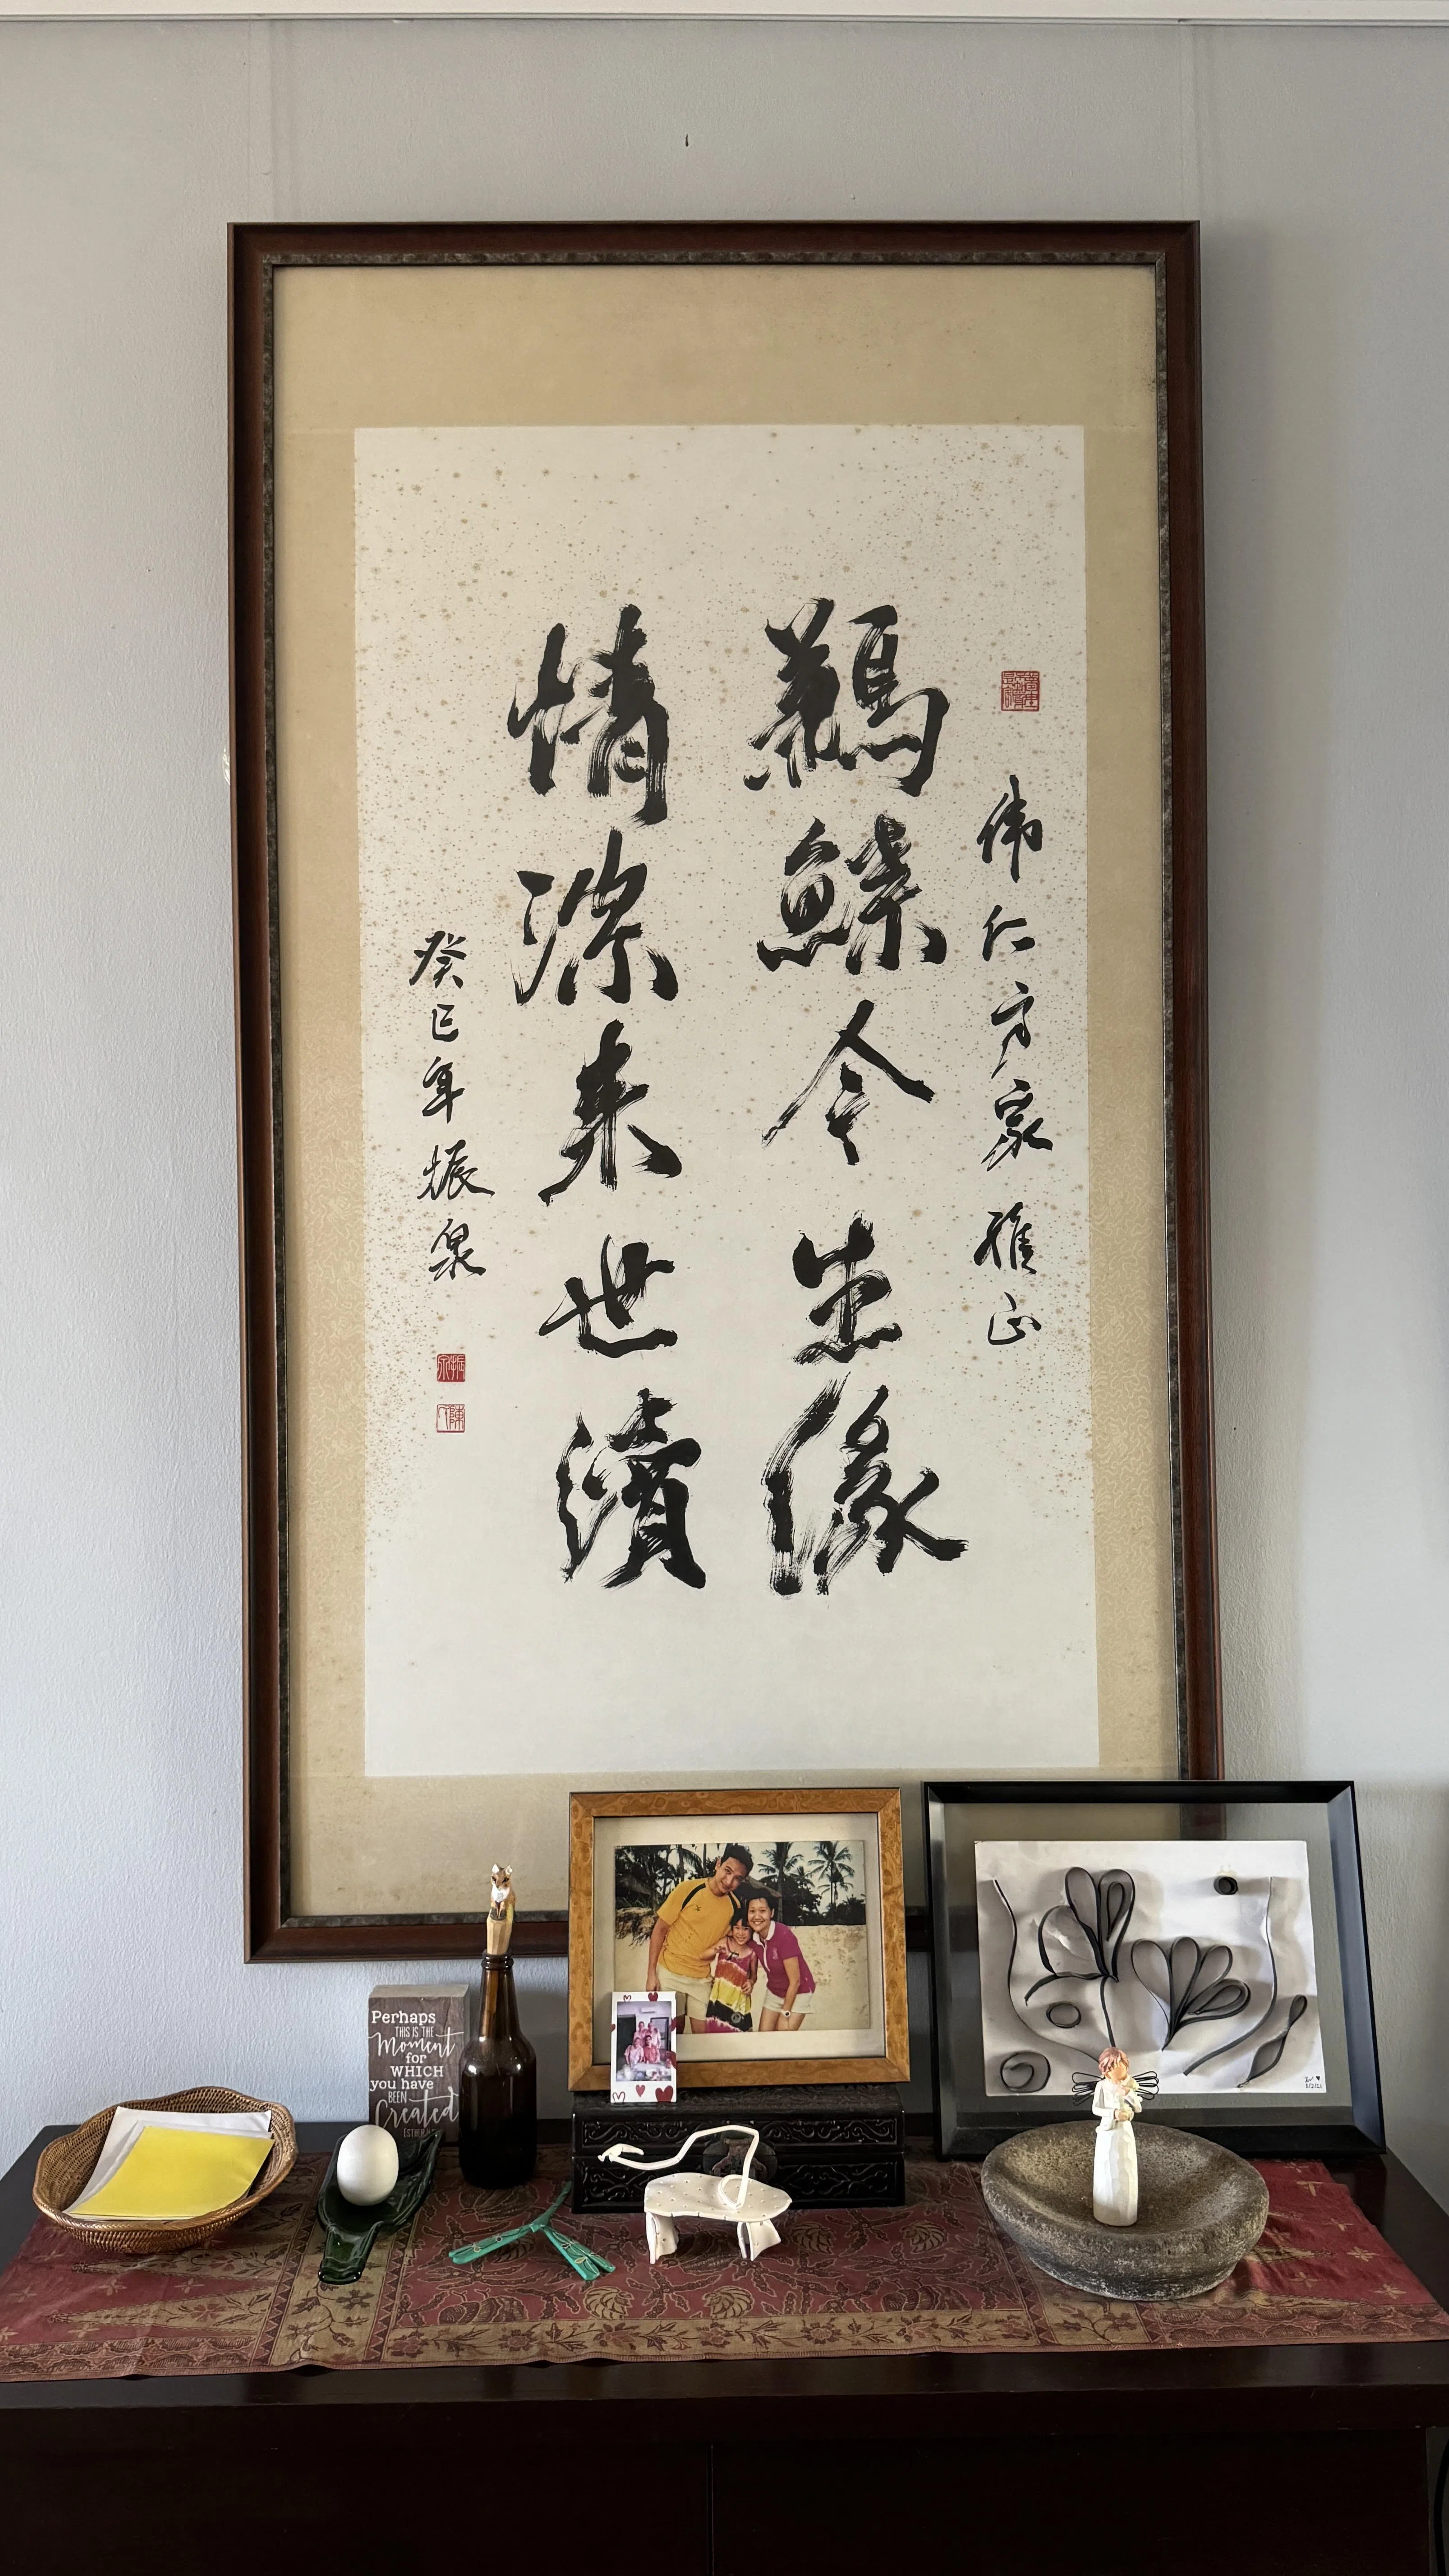 偉仁方家雅正
鶼鰈今生緣
情深来世續
癸巳年振泉
振泉
Perhaps
THIS IS THE
Moment
for
WHICH
you have
BEEN
Created
ESTHER